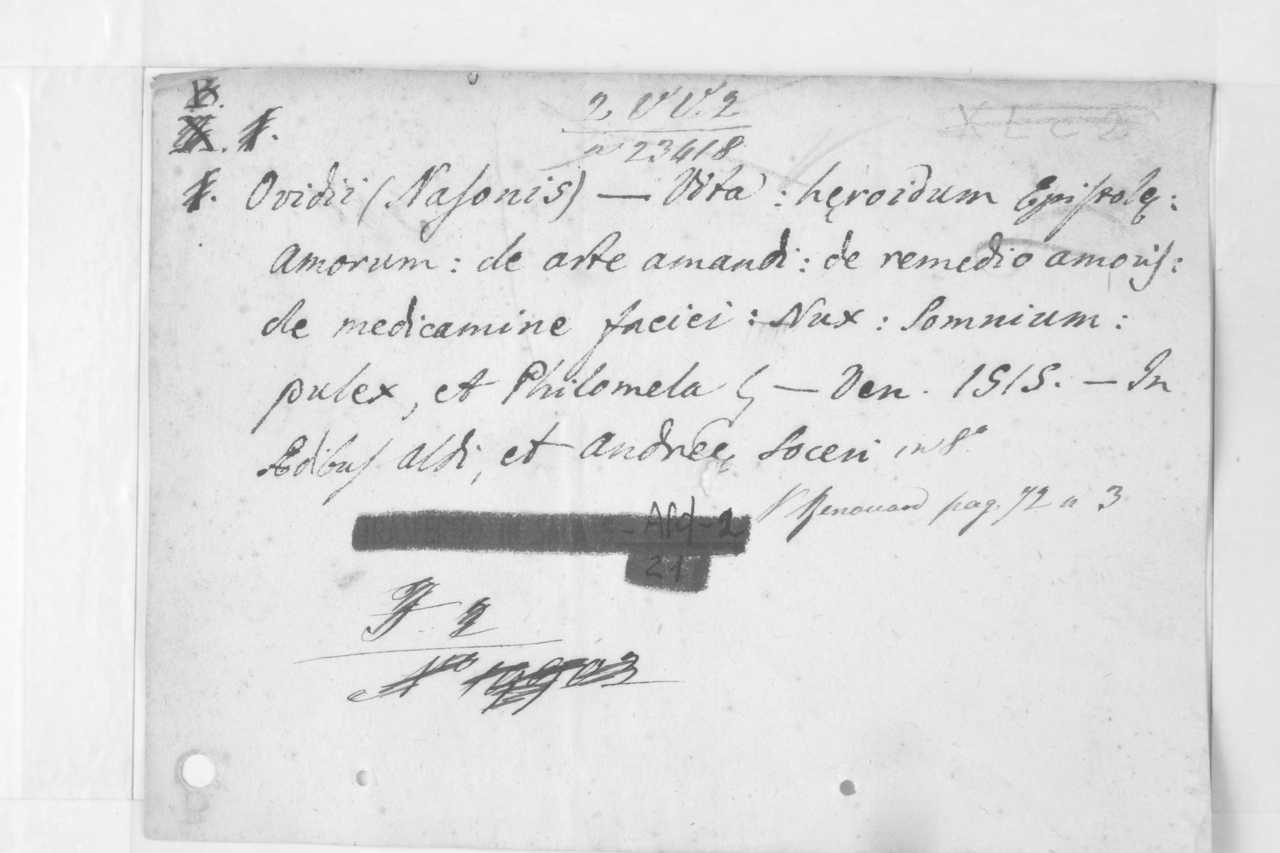 B.
X. f.
2 V V. 2
n° 23418
f. Ovidii (Nasonis) — Vita : hęroidum Epistolę :
Amorum : de arte amandi : de remedio amoris :
de medicamine faciei : Nux : Somnium :
pulex, et Philomela — Ven. 1515. — In
Ædibus Aldi, et Andreę Soceri in 8°
V Renouard pag. 72 n 3
Ald - 2
21
2
N°